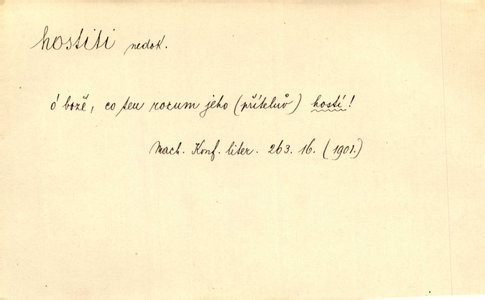 hostiti nedok.
ó bože, co ten rozum jeho (přítelův) hostí!
Mach. Konf. liter. 263. 16. (1901.)